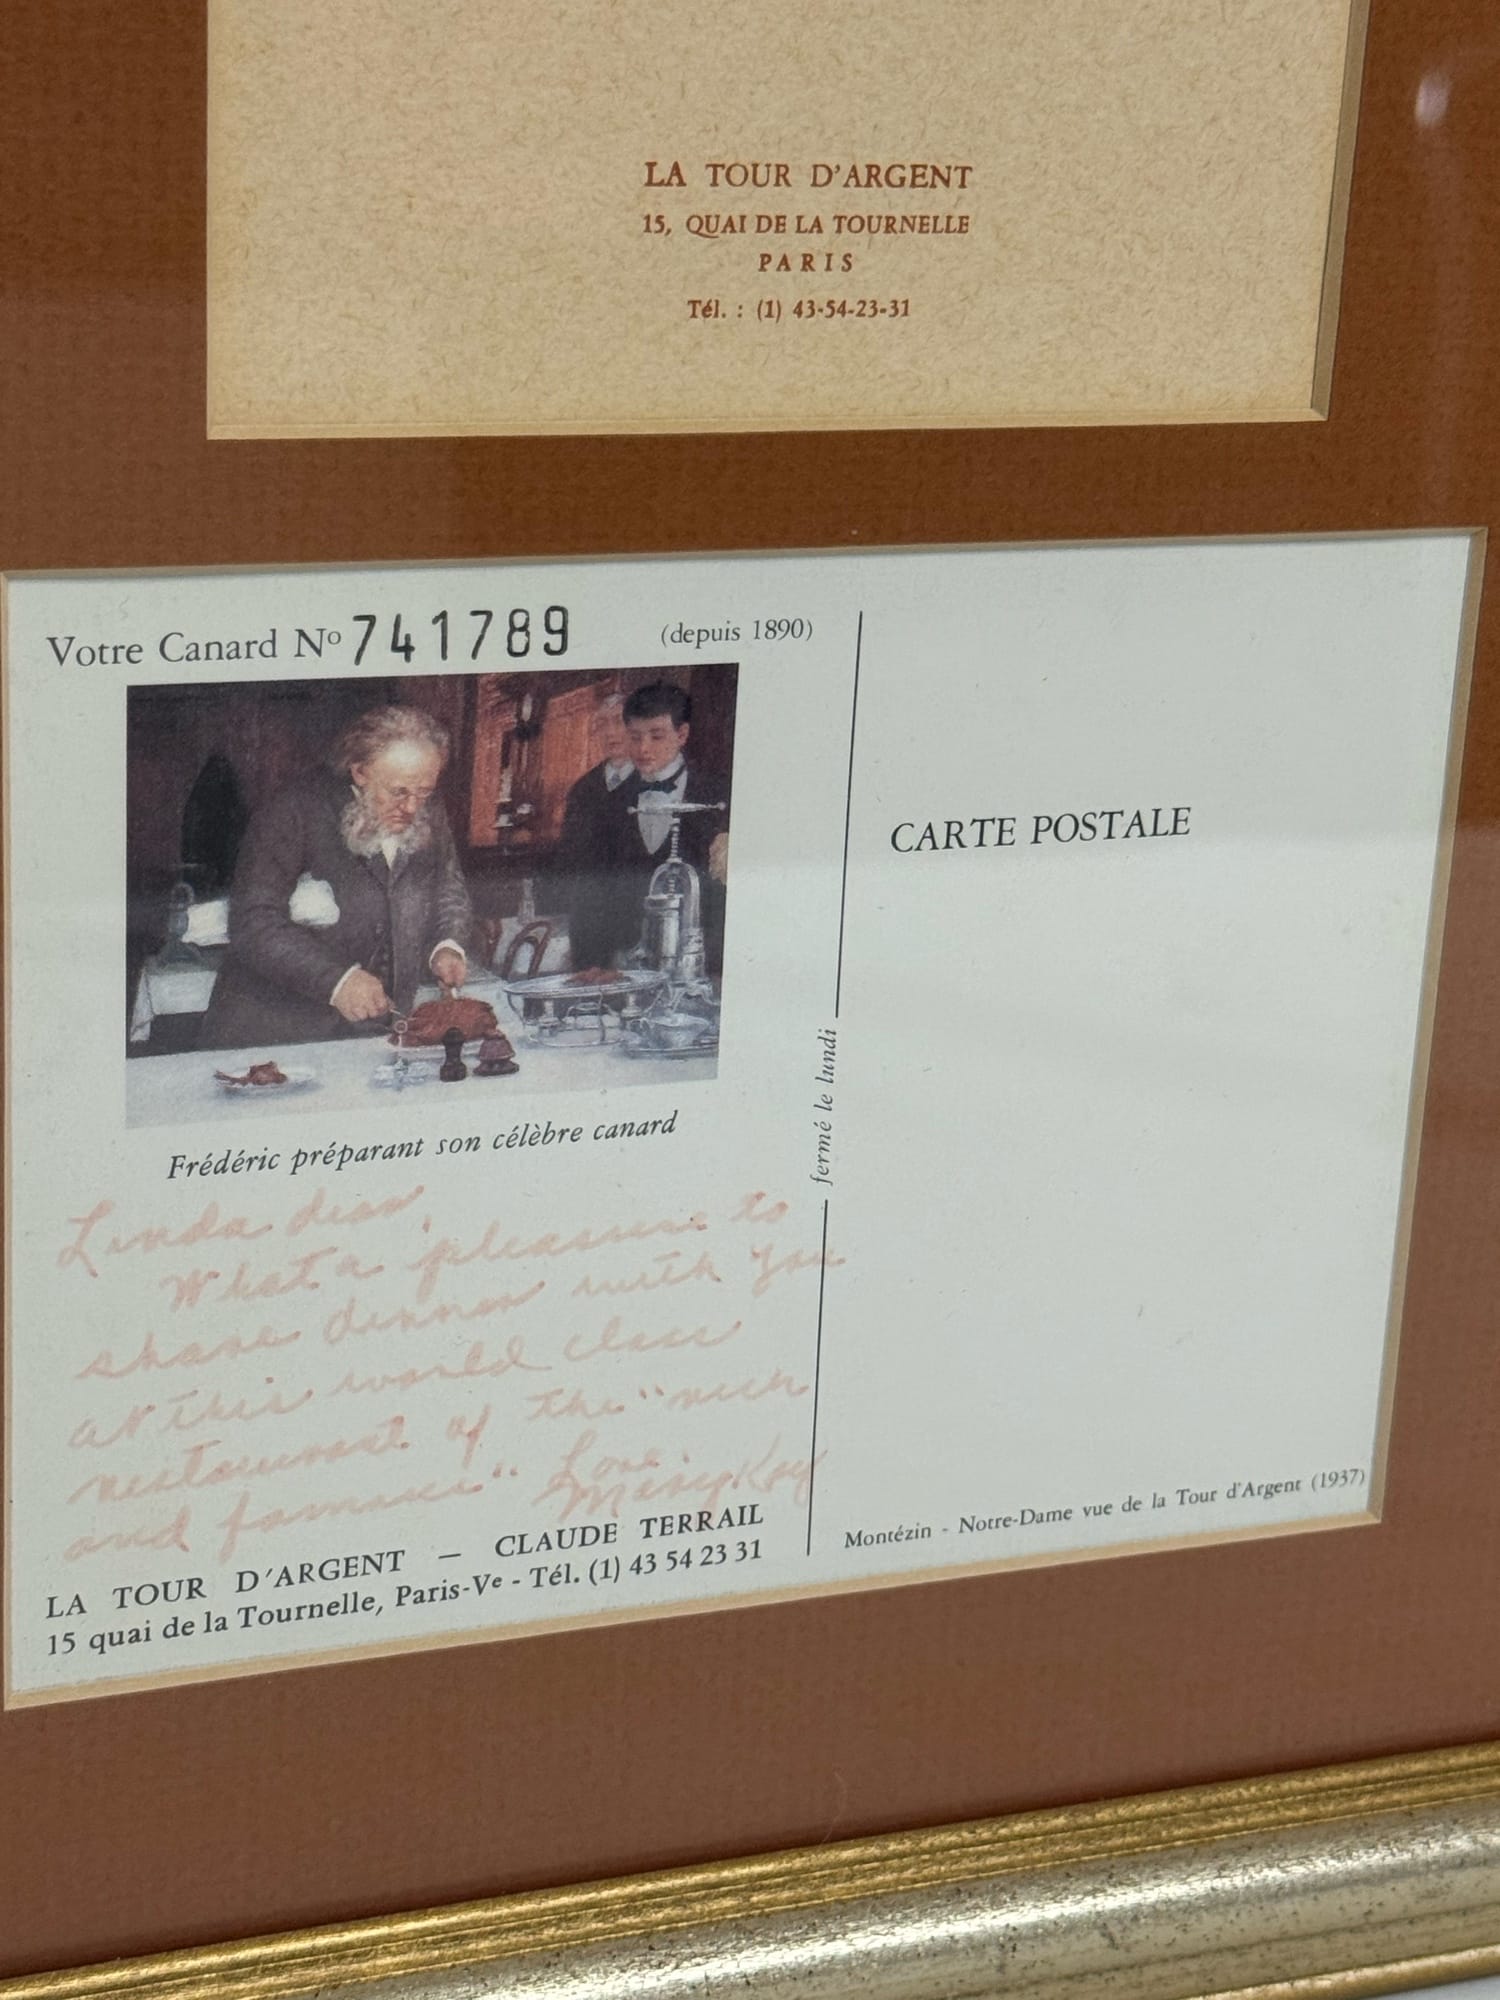 LA TOUR D'ARGENT
15, QUAI DE LA TOURNELLE
PARIS
Tél. : (1) 43-54-23-31
Votre Canard Nº 741789 (depuis 1890)
Frédéric préparant son célèbre canard
Linda dear,
What a pleasure to
share dinner with you
at this world class
restaurant of the "rich
and famous" Love
Mary Kay
LA TOUR D'ARGENT — CLAUDE TERRAIL
15 quai de la Tournelle, Paris-Vᵉ - Tél. (1) 43 54 23 31
fermé le lundi
CARTE POSTALE
Montézin - Notre-Dame vue de la Tour d'Argent (1937)